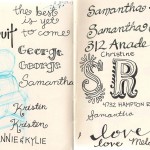 the best is
yet
to come
George
George
Samantha
Kristen
Kristen
NNIE & KYLIE
Samantha
Samantha
312 Anade
Christine
S R
4782 HAMPTON R
Samantha
love
love